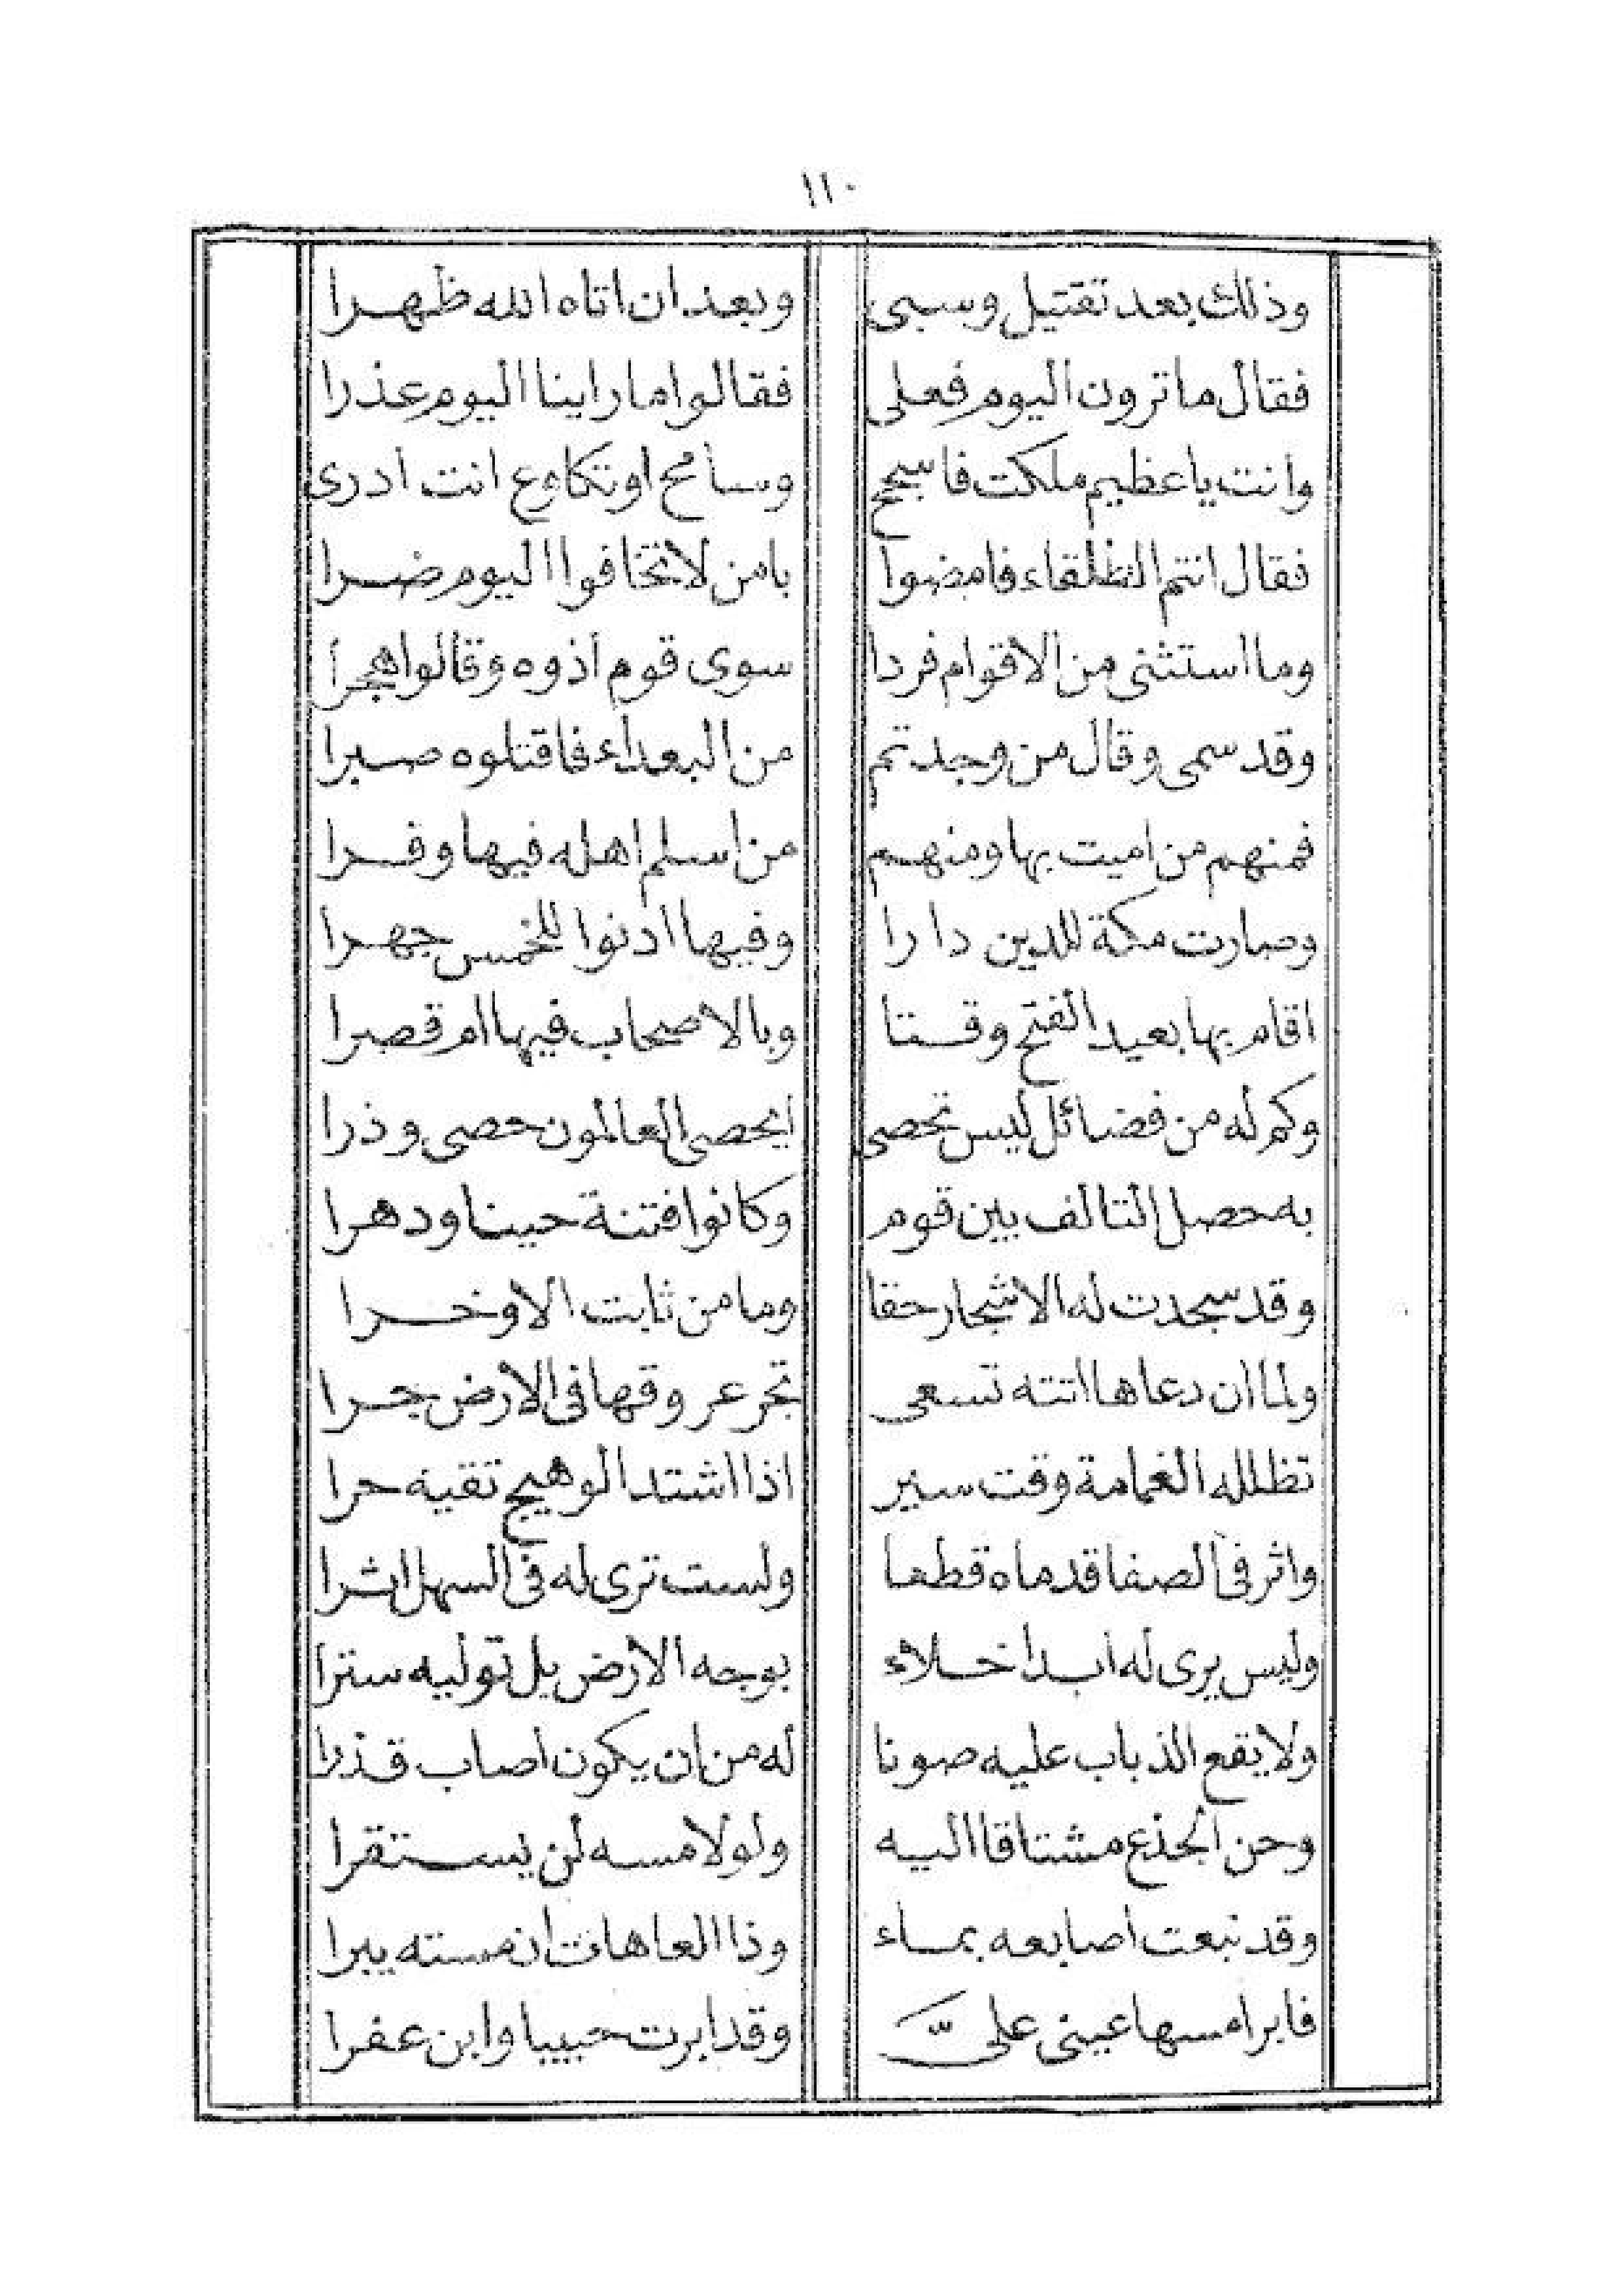 ١١٠
وذلك بعد تقتيل وسبى وبعد ان اتاه الله ظهرا
فقال ما ترون اليوم فعلى فقالوا ما راينا اليوم عذرا
وانت يا عظيم ملكت فاسجح وسامح او تكاوع انت ادرى
فقال انتم الطلقاء فامضوا بامن لا تخافوا اليوم ضرا
وما استثنى من الاقوام فردا سوى قوم أذوه وقالوا هجرا
وقد سمى وقال من وجدتم من البعداء فاقتلوه صبرا
فمنهم من اميت بها ومنهم من اسلم اهله فيها وفرا
وصارت مكة للدين دارا وفيها ادنوا للخمس جهرا
اقام بها بعيد الفتح وقتا وبالاصحاب فيها ام قصرا
وكم له من فضائل ليس تحصى ايحصى العالمون حصى وذرا
به حصل التالف بين قوم وكانوا فتنة حينا ودهرا
وقد سجدت له الاشجار حقا وما من ثابت الا وخرا
ولما ان دعاها اتته تسعى تجر عروقها فى الارض جرا
تظلله الغمامة وقت سير اذا اشتد الوهيج تقيه حرا
واثر فى الصفا قدماه قطعا ولست ترى له فى السهل اثرا
وليس يرى له ابدا خلاء بوجه الارض بل توليه سترا
ولا يقع الذباب عليه صونا له من ان يكون اصاب قذرا
وحن الجذع مشتاقا اليه ولولا مسه لن يستقرا
وقد نبعت اصابعه بماء وذا العاهات ان مسته يبرا
فابرا مسها عينى علىّ وقد ابرت حبيبا وابن عفرا